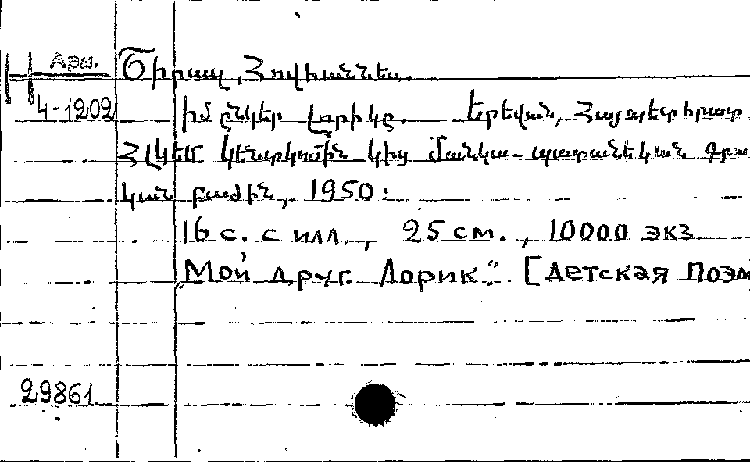 Арм.
Շիրազ, Հովհաննես.
4-1202
Իմ ընկեր Լորիկը. Երևան, Հայպետհրատ
ՀԼԿԵՄ Կենտկոմին կից մանկա-պատանեկան գրա
կան բաժին, 1950:
16 с. с илл., 25 см., 10000 экз.
„Мой друг Лорик". [Детская Поэм
29861